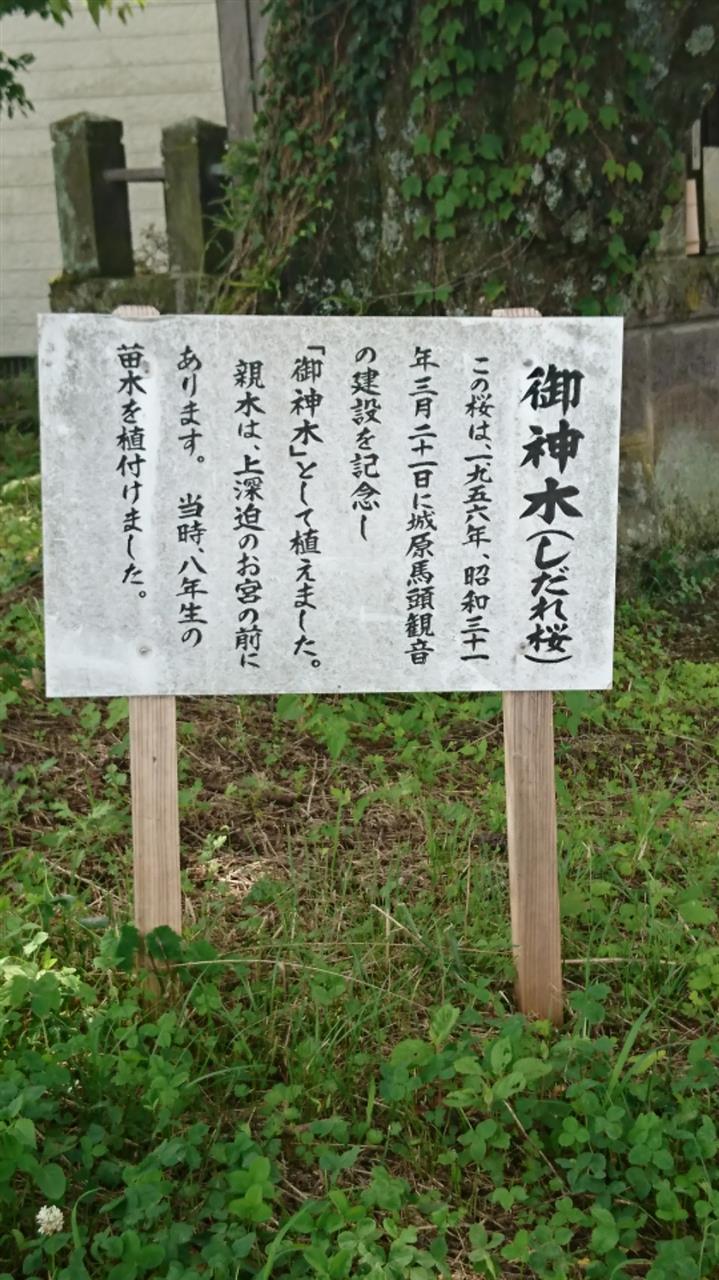 御神木(しだれ桜)
この桜は、一九五六年、昭和三十一
年三月二十一日に城原馬頭観音
の建設を記念し
「御神木」として植えました。
親木は、上深迫のお宮の前に
あります。 当時、八年生の
苗木を植付けました。